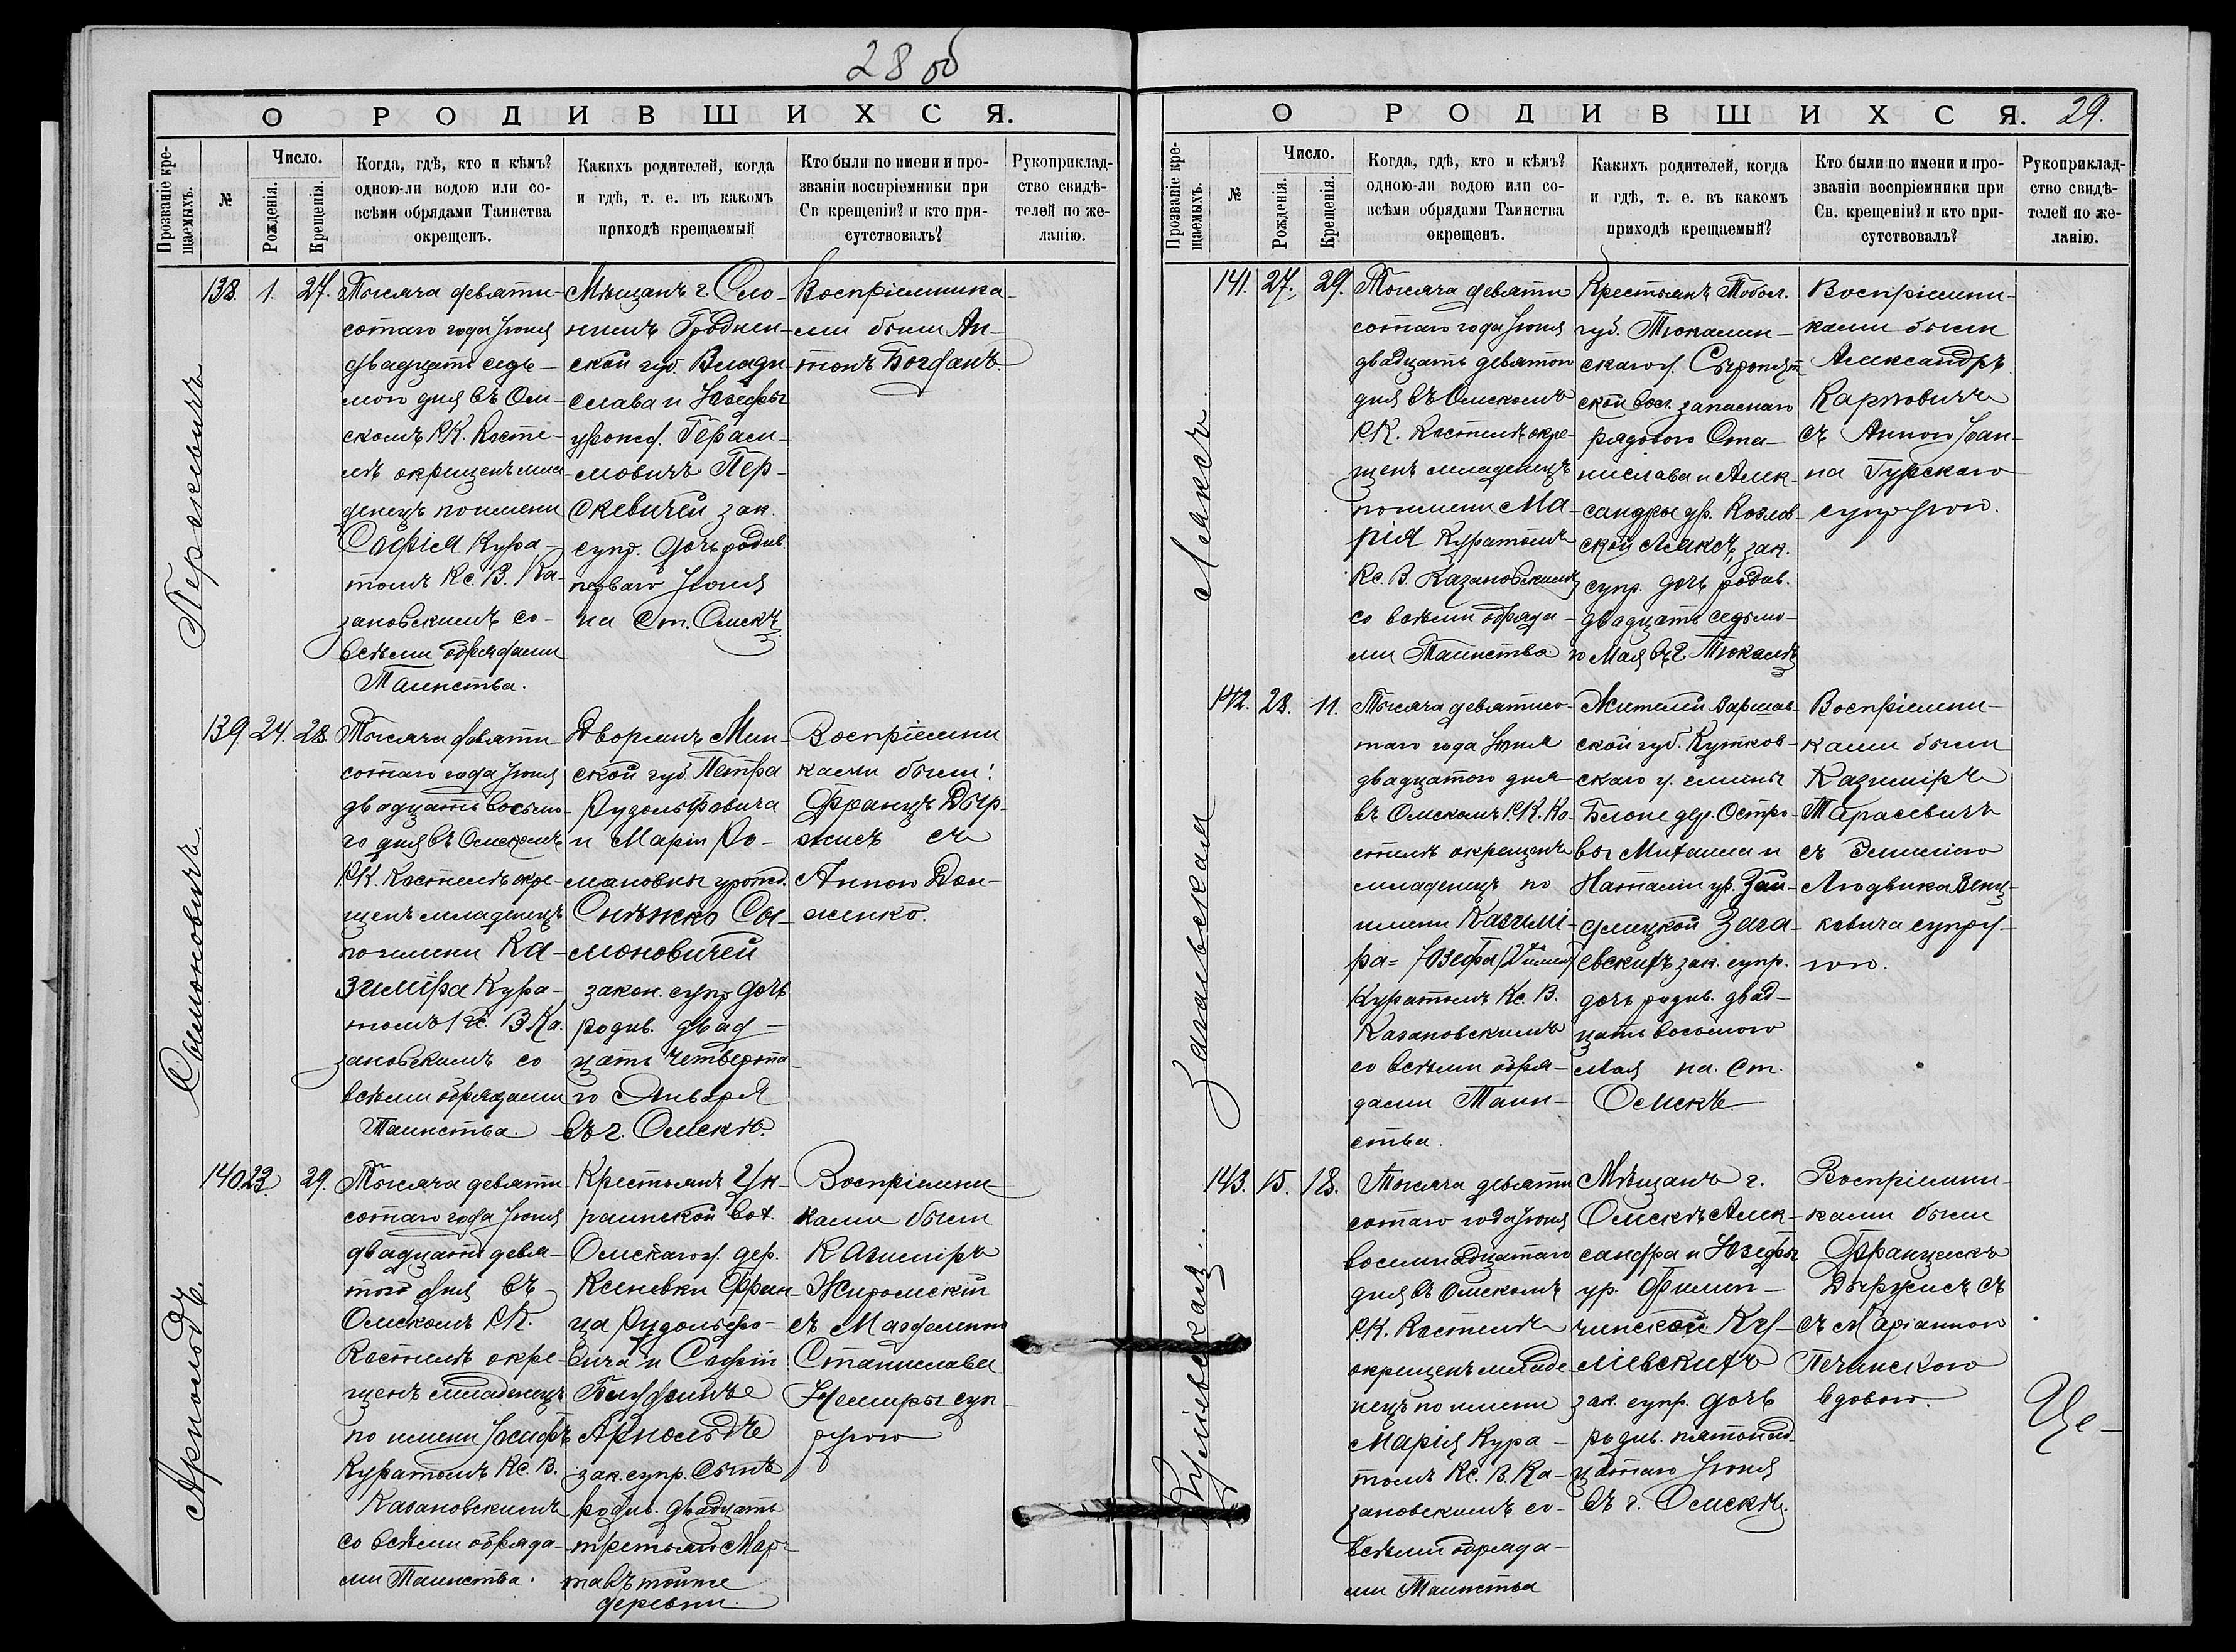 28 об
О РОДИВШИХСЯ.
Прозваніе кре-
щаемыхъ.
№
Число.
Рожденія.
Крещенія.
Когда, гдѣ, кто и кѣмъ?
одною-ли водою или со-
всѣми обрядами Таинства
окрещенъ.
Какихъ родителей, когда
и гдѣ, т. е. въ какомъ
приходѣ крещаемый
Кто были по имени и про-
званіи воспріемники при
Св крещеніи? и кто при-
сутствовалъ?
Рукоприклад-
ство свидѣ-
телей по же-
ланію.
Перскевичъ
138. 1. 27.
Тысяча девяти-
сотаго года Іюня
двадцать седь-
мого дня въ Ом-
скомъ Р.К. Косте-
лѣ окрещенъ мла
денецъ по имени
Софія Кура-
томъ Кс. В. Ка-
зановскимъ со-
всѣми обрядами
Таинства.
Мѣщанъ г. Сло-
нимъ Гроднен-
ской губ. Влади-
слава и Юзефы
урожд. Гераси-
мовичъ Пер-
скевичей зак.
супр. дочь родив.
перваго Іюня
на ст. Омскъ.
Воспріемника-
ми были Ан-
тонъ Богданъ.
Сымоновичъ
139. 24. 28
Тысяча девяти-
сотаго года Іюня
двадцать восьмо-
го дня въ Омскомъ
Р.К. Костелѣ окре-
щенъ младенецъ
по имени Ка-
зиміра Кура-
томъ Кс. В Ка.
зановскимъ со
всѣми обрядами
Таинства.
Дворянъ Мин-
ской губ. Петра
Рудольфовича
и Маріи Ро-
мановны урожд.
Снѣжко Сы-
моновичей
закон. супр дочь
родив. двад-
цать четверта-
го Января
въ г. Омскѣ.
Воспріемни
ками были:
Францъ Дыр-
жисъ съ
Анною Дом-
женко.
Арнольдъ
140. 23. 29.
Тысяча девяти
сотаго года Іюня
двадцать девя-
того дня въ
Омскомъ Р.К.
Костелѣ окре-
щенъ младенецъ
по имени Іосифъ
Куратомъ Кс. В.
Казановскимъ
со всѣми обряда-
ми Таинства.
Крестьянъ Ук-
раинской вол.
Омскаго у. дер.
Ксеневки Фран-
ца Рудольфо-
вича и Софіи
Арнольдъ
зак. супр. сынъ
родив. двадцать
третьяго Мар-
та въ тойже
деревни.
Воспріемни
ками были
Казиміръ
Жиромскій
съ Магдаленою
Станислава
Немиры суп-
ругою
О РОДИВШИХСЯ.
29.
Прозваніе кре-
щаемыхъ.
№
Число.
Рожденія.
Крещенія.
Когда, гдѣ, кто и кѣмъ?
одною-ли водою или со-
всѣми обрядами Таинства
окрещенъ.
Какихъ родителей, когда
и гдѣ, т. е. въ какомъ
приходѣ крещаемый?
Кто были по имени и про-
званіи воспріемники при
Св. крещеніи? и кто при-
сутствовалъ?
Рукоприклад-
ство свидѣ-
телей по же-
ланію.
Лаксъ
141. 27. 29.
Тысяча девяти
сотаго года Іюня
двадцать девятого
дня въ Омскомъ
Р.К. Костелѣ окре-
щенъ младенецъ
по имени Ма-
рія Куратомъ
Кс. В. Казановскимъ
со всѣми обряда-
ми Таинства
Крестьянъ Тобол.
губ. Тюкалин-
скаго у.
ской вол. запаснаго
рядового Ста-
нислава и Алек-
сандры ур. Козлов-
ской Лаксъ, зак.
супр. дочь родив.
двадцать седьмо-
го Мая въ г. Тюкалѣ
Воспріемни-
ками были
Александръ
Карповичъ
съ Анною Іоан-
на Гурскаго
супругою.
Загаевская
142. 28. 11.
Тысяча девятисо-
таго года Іюня
двадцатого дня
въ Омскомъ Р.К. Ко-
стелѣ окрещенъ
младенецъ по
имени Казимі-
ра-Юзефа (2 имен)
Куратомъ Кс. В.
Казановскимъ
со всѣми обря-
дами Таин-
ства.
Жителей Варшав-
ской губ. Кутков-
скаго у. гмины
Блоне дер. Остро-
вы Михаила и
Наталіи ур.
Зага-
евскихъ зак. супр.
дочь родив. двад-
цать восьмого
Мая на ст.
Омскъ.
Воспріемни-
ками были
Казиміръ
Тарасевичъ
съ Эмиліею
Людвика Венц-
ковича супру-
гою.
Кумѣевская
143. 15. 18.
Тысяча девяти
сотаго года Іюня
восемнадцатаго
дня въ Омскомъ
Р.К. Костелѣ
окрещенъ младе-
нецъ по имени
Марія Кура-
томъ Кс. В. Ка-
зановскимъ со-
всѣми обряда-
ми Таинства
Мѣщанъ г.
Омскъ Алек-
сандра и Юзефы
ур. Филип-
чинской Ку-
мѣевскихъ
зак. супр. дочь
родив. пятонад-
цатаго Іюня
въ г. Омскѣ.
Воспріемни-
ками были
Францискъ
Дыржисъ съ
съ Маріанною
Печинскою
вдовою.
Це-